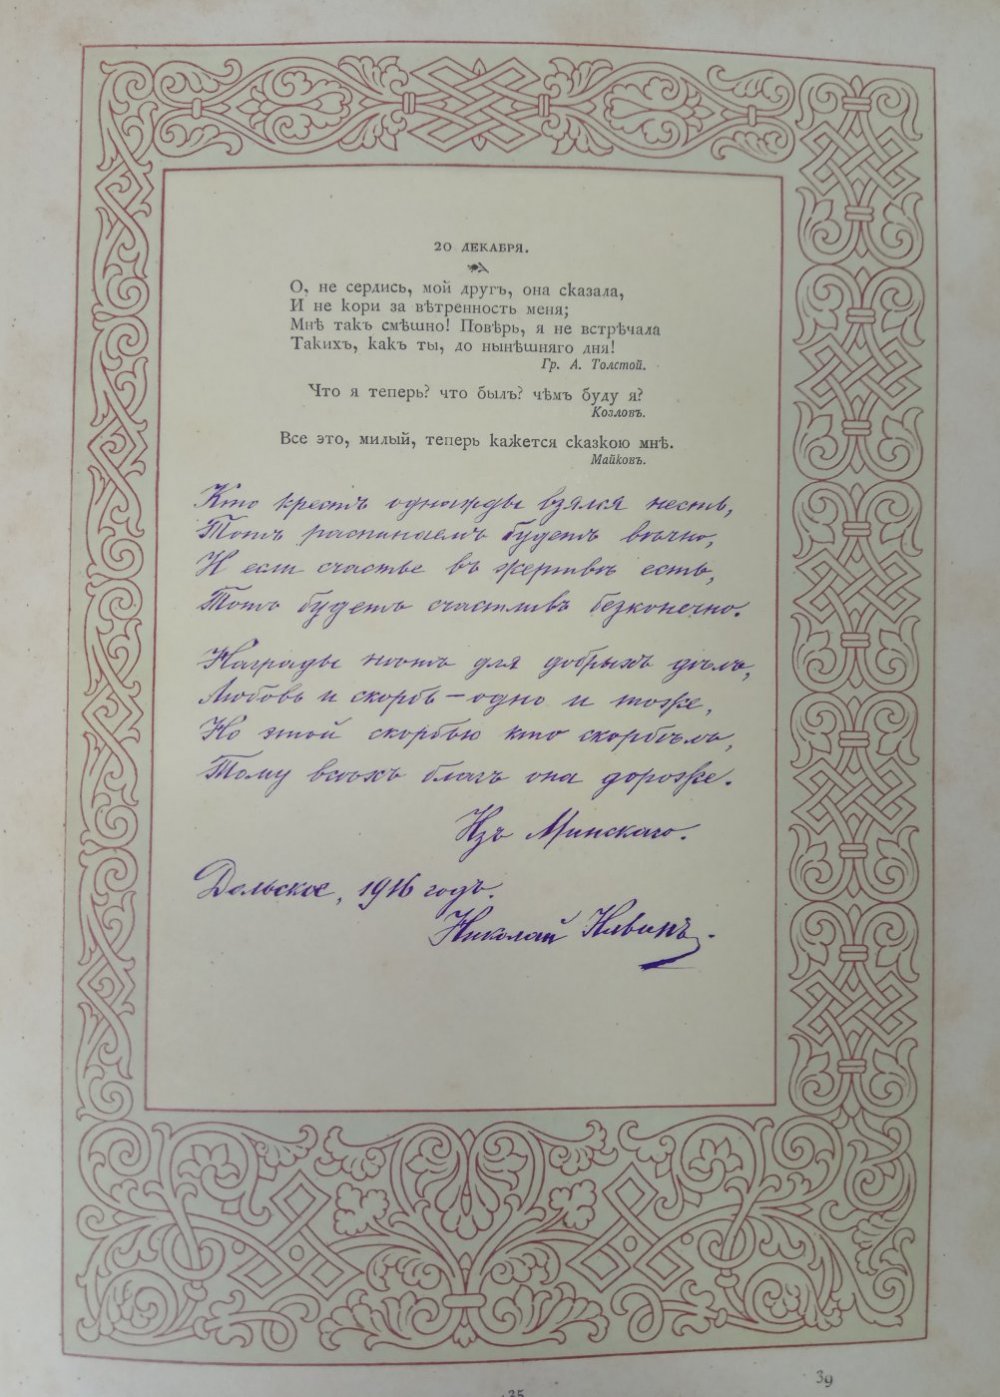 20 ДЕКАБРЯ.
О, не сердись, мой другъ, она сказала,
И не кори за вѣтренность меня;
Мнѣ такъ смѣшно! Повѣрь, я не встрѣчала
Такихъ, какъ ты, до нынѣшняго дня!
Гр. А. Толстой.
Что я теперь? что былъ? чѣмъ буду я?
Козловъ.
Все это, милый, теперь кажется сказкою мнѣ.
Майковъ.
Кто крестъ однажды взялся несть,
Тотъ распинаемъ будетъ вѣчно,
И если счастье въ жертвѣ есть,
Тотъ будетъ счастливъ безконечно.
Награды нѣтъ для добрыхъ дѣлъ,
Любовь и скорбь – одно и тоже,
Но этой скорбью кто скорбѣлъ,
Тому всѣхъ благъ она дороже.
Изъ Минскаго.
1916 годъ.
Николай
39
35